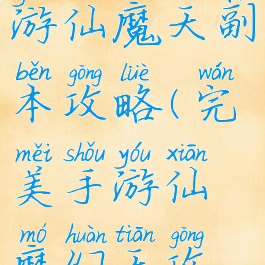 游仙魔天副
běn gōng lüè wán
本攻略(完
měi shǒu yóu xiān
美手游仙
mó huàn tiān gōng
魔幻天攻